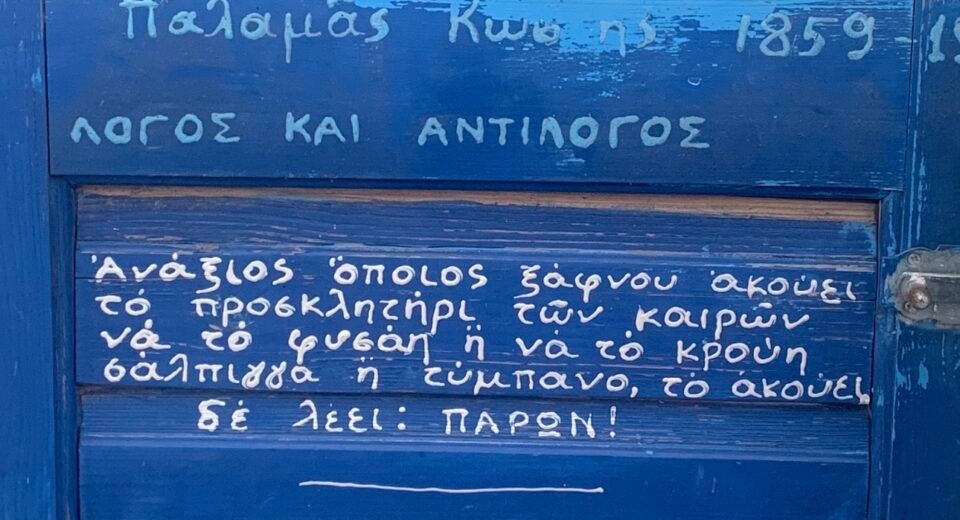 Παλαμᾶς Κωσ ης 1859 - 1
ΛΟΓΟΣ ΚΑΙ ΑΝΤΙΛΟΓΟΣ
Ἀνάξιος ὅποιος ξάφνου ἀκούει
τό προσκλητήρι τῶν καιρῶν
νά τό φυσάη ἤ νά τό κρούη
σάλπιγγα ἤ τύμπανο, τό ἀκούει
δέ λέει: ΠΑΡΩΝ!